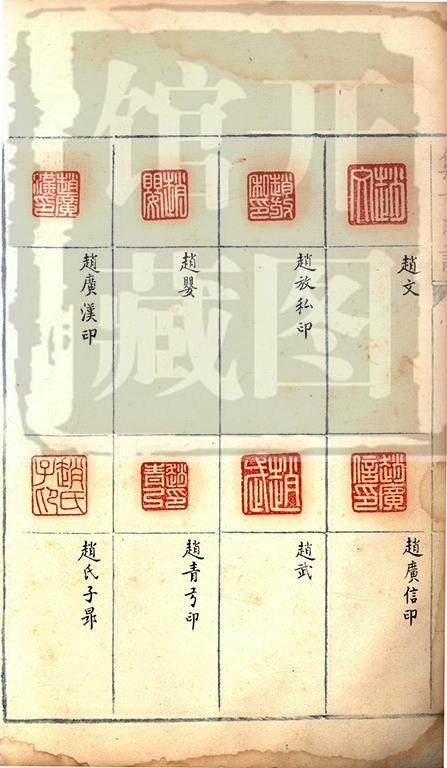 开图
馆藏
趙文
趙放私印
趙嬰
趙廣漢印
趙廣信印
趙武
趙青亏印
趙氏子昂